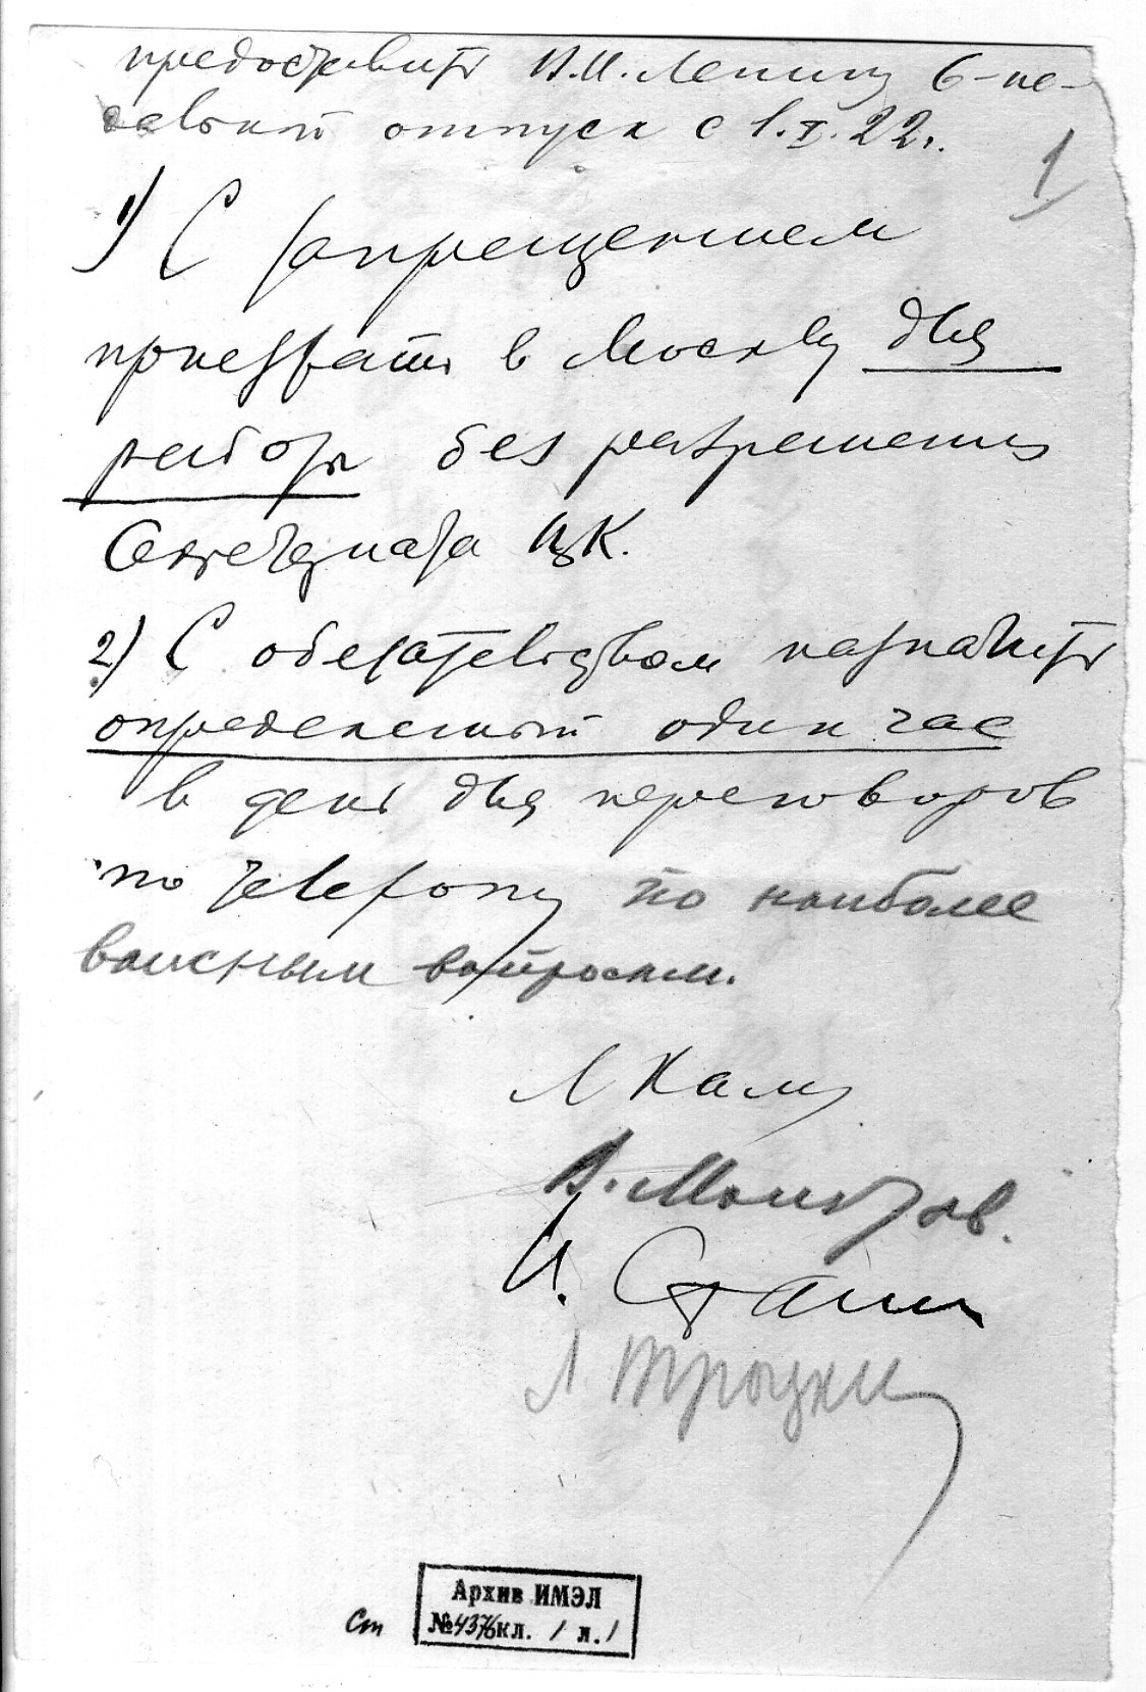 предоставить В.И. Ленину 6-не-
дельный отпуск с 1.X.22г.
1
1) С запрещением
приезжать в Москву для
работы без разрешения
Секретариата ЦК.
2) С обязательством назначить
определенный один час
в день для переговоров
по телефону по наиболее
важным вопросам.
Л Кам
В. Молотов.
И. Сталин
Л. Троцкий
Архив ИМЭЛ
Ст №4376кл. 1 л. 1